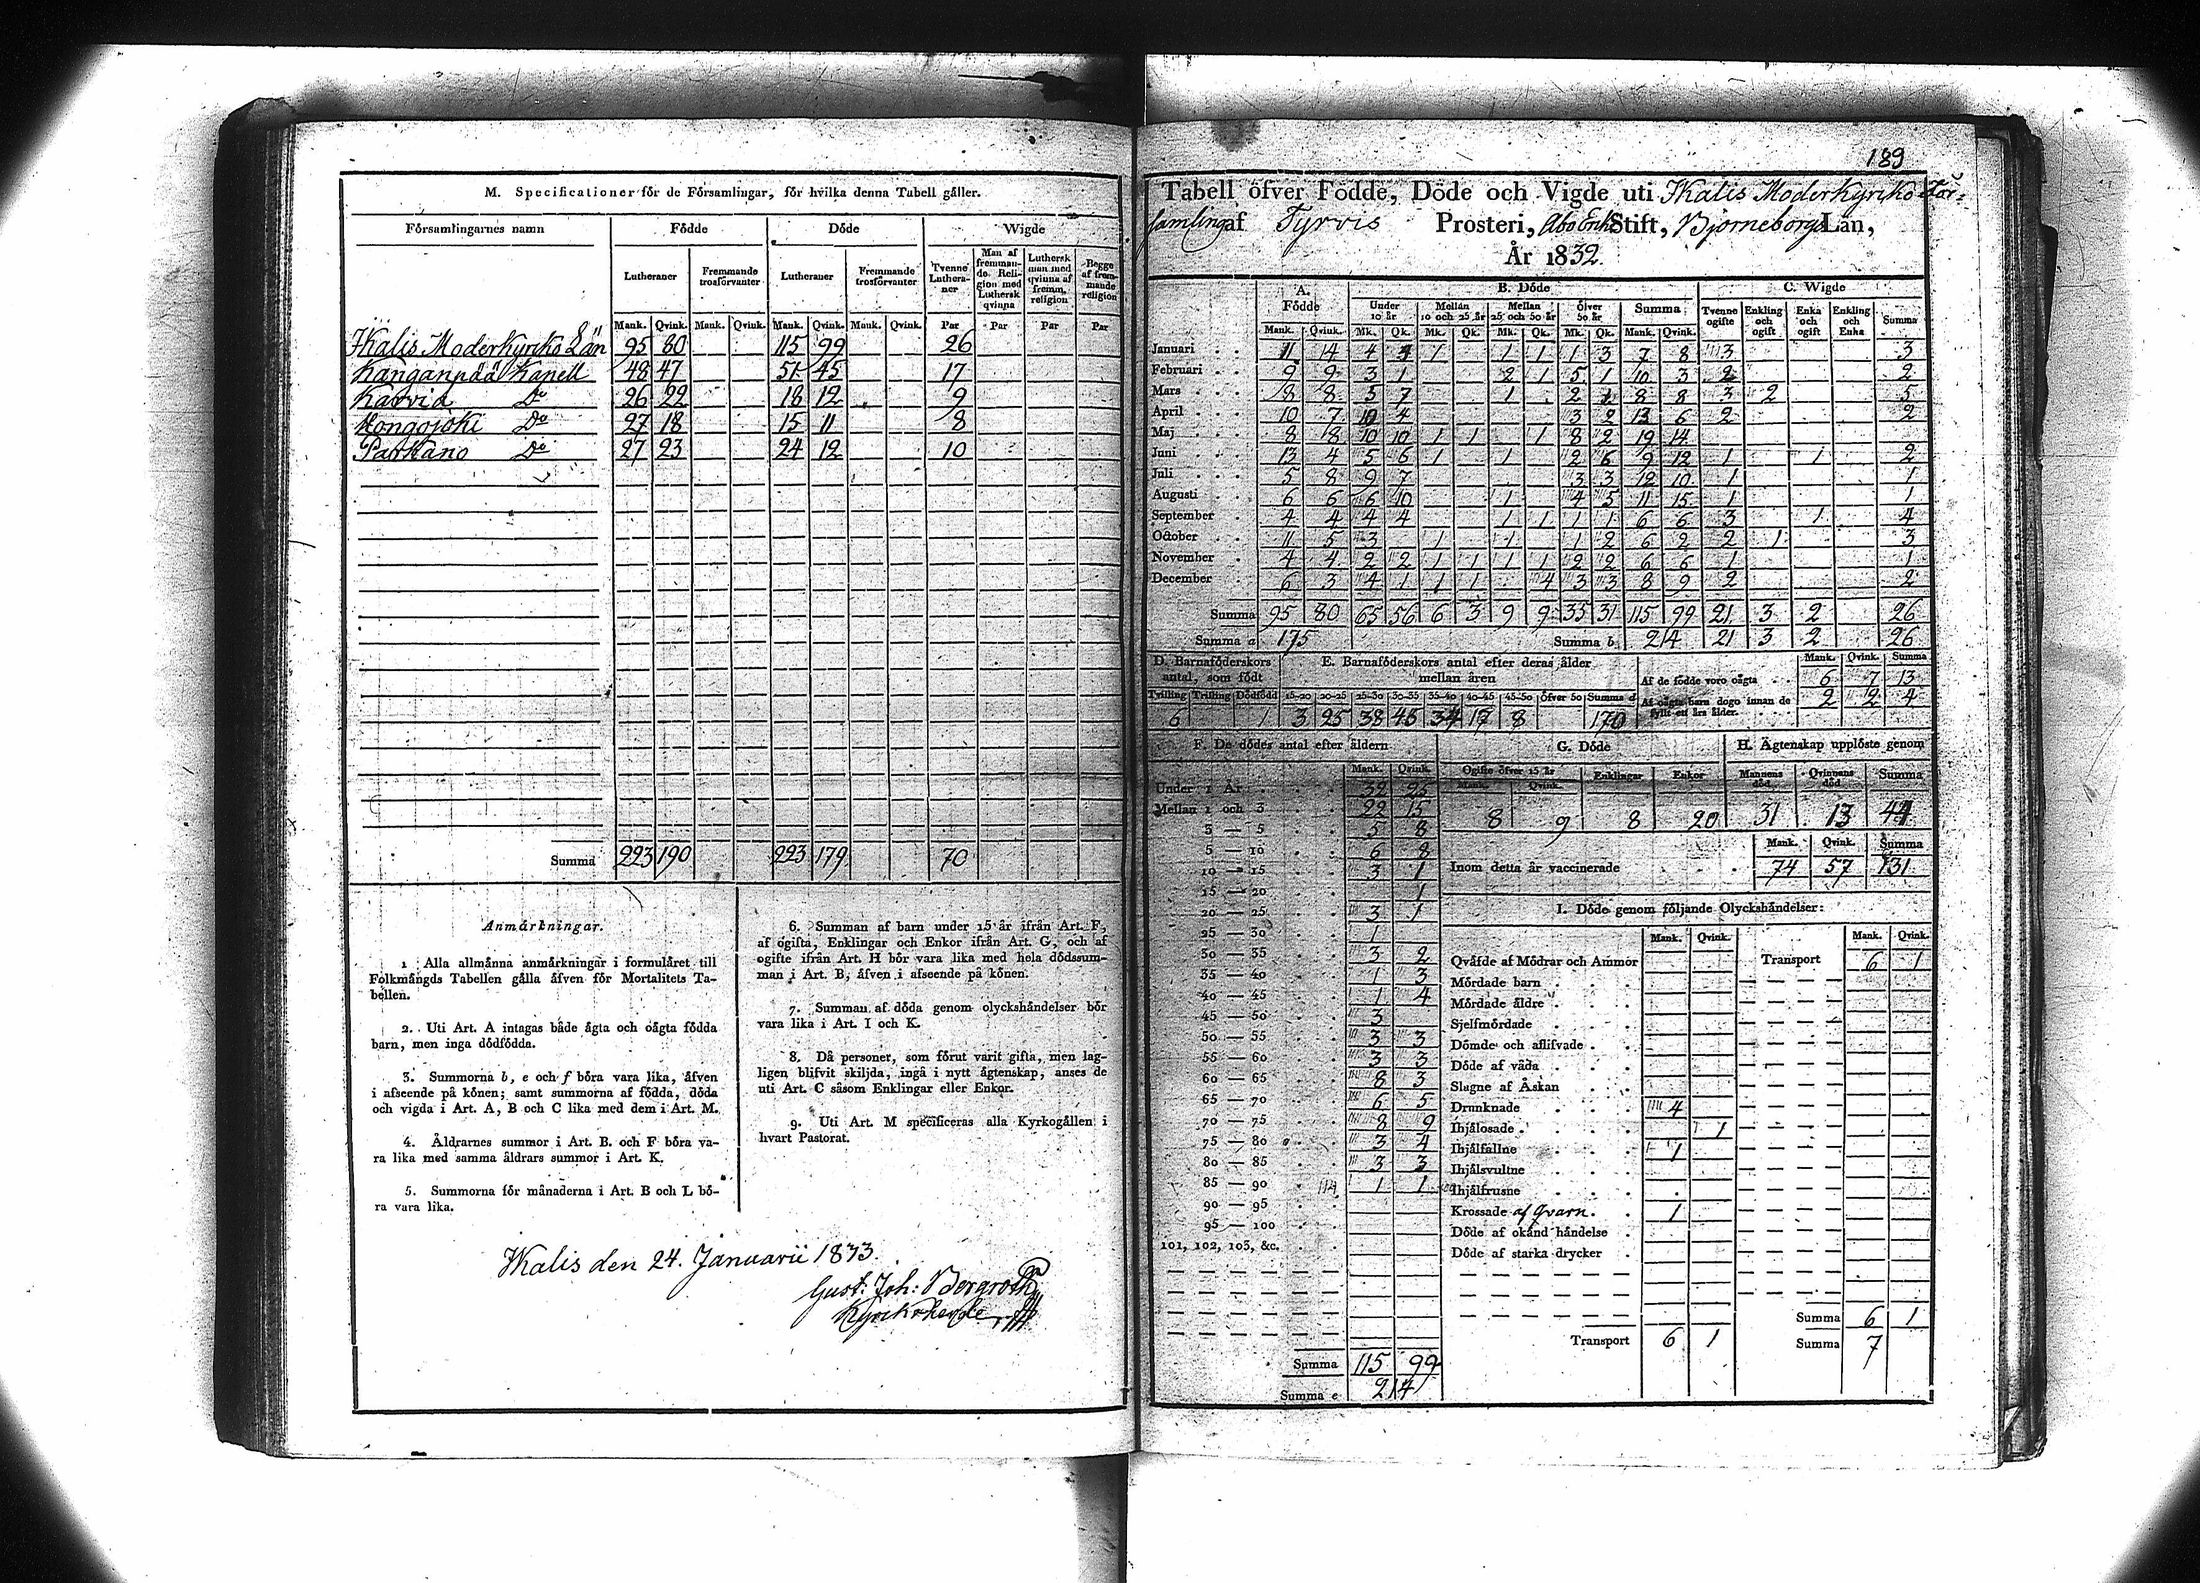 M. Specificationer för de Församlingar, för hvilka denna Tabell gäller.
Församlingarnes namn Födde Döde Wigde
Lutheraner Fremmande trosförvanter Lutheraner Fremmande trosförvanter Tvenne Lutheraner Man af fremmande Religion med Luthersk qvinna Luthersk man med qvinna af fremm. religion Begge af fremmande religion
Mank. Qvink. Mank. Qvink. Mank. Qvink. Mank. Qvink. Par Par Par Par
Ikalis Moderkyrko Län 95 80 115 99 26
Kanganpää Kapell 48 47 51 45 17
Karvia Do 26 22 18 12 9
Kongojoki Do 27 18 15 11 8
Parkano Do 27 23 24 12 10
Summa 223 190 223 179 70
Anmärkningar.
1 Alla allmänna anmärkningar i formuläret till
Folkmängds Tabellen gälla äfven för Mortalitets Ta-
bellen.
2. Uti Art. A intagas både ägta och oägta födda
barn, men inga dödfödda.
3. Summorna b, e och f böra vara lika, äfven
i afseende på könen; samt summorna af födda, döda
och vigda i Art. A, B och C lika med dem i Art. M.
4. Åldrarnes summor i Art. B. och F böra va-
ra lika med samma åldrars summor i Art. K.
5. Summorna för månaderna i Art. B och L bö-
ra vara lika.
6. Summan af barn under 15 år ifrån Art. F,
af ogifta, Enklingar och Enkor ifrån Art. G, och af
ogifte ifrån Art. H bör vara lika med hela dödssum-
man i Art. B, äfven i afseende på könen.
7. Summan af döda genom olyckshändelser bör
vara lika i Art. I och K.
8. Då personer, som förut varit gifta, men lag-
ligen blifvit skiljda, ingå i nytt ägtenskap, anses de
uti Art. C såsom Enklingar eller Enkor.
9. Uti Art. M specificeras alla Kyrkogällen i
hvart Pastorat.
Ikalis den 24. Januarii 1833.
Gust. Joh: Bergroth
Kyrkoherde
189
Tabell öfver Födde, Döde och Vigde uti Ikalis Moderkyrko För-
samling af Tyrvis Prosteri, Åbo Erke Stift, Björneborgs Län,
År 1832.
A. Födde B. Döde C. Wigde
Under 10 år Mellan 10 och 25 år Mellan 25 och 50 år Öfver 50 år Summa Tvenne ogifte Enkling och ogift Enka och ogift Enkling och Enka Summa
Mank. Qvink. Mk. Qk. Mk. Qk. Mk. Qk. Mk. Qk. Mank. Qvink.
Januari 11 14 4 3 1 1 1 1 3 7 8 3 3
Februari 9 9 3 1 2 1 5 1 10 3 2 2
Mars 8 8 5 7 1 2 1 8 8 3 2 5
April 10 7 10 4 3 2 13 6 2 2
Maj 8 8 10 10 1 1 1 8 2 19 14
Juni 13 4 5 6 1 1 2 6 9 12 1 1 2
Juli 5 8 9 7 3 3 12 10 1 1
Augusti 6 6 6 10 1 4 5 11 15 1 1
September 4 4 4 4 1 1 1 1 6 6 3 1 4
October 11 5 3 1 1 1 2 6 2 2 1 3
November 4 4 2 2 1 1 1 1 2 2 6 6 1 1
December 6 3 4 1 1 1 4 3 3 8 9 2 2
Summa 95 80 65 56 6 3 9 9 35 31 115 99 21 3 2 26
Summa a 175 Summa b 214 21 3 2 26
D. Barnaföderskors antal, som födt E. Barnaföderskors antal efter deras ålder mellan åren Mank. Qvink. Summa
Af de födde voro oägta 6 7 13
Af oägta barn dogo innan de fyllt ett års ålder. 2 2 4
Tvilling Trilling Dödfödd 15-20 20-25 25-30 30-35 35-40 40-45 45-50 Öfver 50 Summa d
6 1 3 25 38 45 34 17 8 170
F. De dödes antal efter åldern
Mank. Qvink.
Under 1 År 32 25
Mellan 1 och 3 22 15
3 — 5 5 8
5 — 10 6 8
10 — 15 3 1
15 — 20 1
20 — 25 3 1
25 — 30 1
30 — 35 3 2
35 — 40 1 3
40 — 45 1 4
45 — 50 3
50 — 55 3 3
55 — 60 3 3
60 — 65 8 3
65 — 70 6 5
70 — 75 8 9
75 — 80 3 4
80 — 85 3 3
85 — 90 114 1 1
90 — 95
95 — 100
101, 102, 103, &c.
Summa 115 99
Summa e 214
G. Döde
Ogifte öfver 15 år Enklingar Enkor
Mank. Qvink.
8 9 8 20
H. Ägtenskap upplöste genom
Mannens död Qvinnans död Summa
31 13 44
Mank. Qvink. Summa
Inom detta år vaccinerade 74 57 131
I. Döde genom följande Olyckshändelser:
Mank. Qvink. Mank. Qvink.
Qväfde af Mödrar och Ammor Transport 6 1
Mördade barn
Mördade äldre
Sjelfmördade
Dömde och aflifvade
Döde af våda
Slagne af Åskan
Drunknade 4
Ihjälosade 1
Ihjälfallne 1
Ihjälsvultne
Ihjälfrusne
Krossade af Qvarn 1
Döde af okänd händelse
Döde af starka drycker
Summa 6 1
Transport 6 1 Summa 7